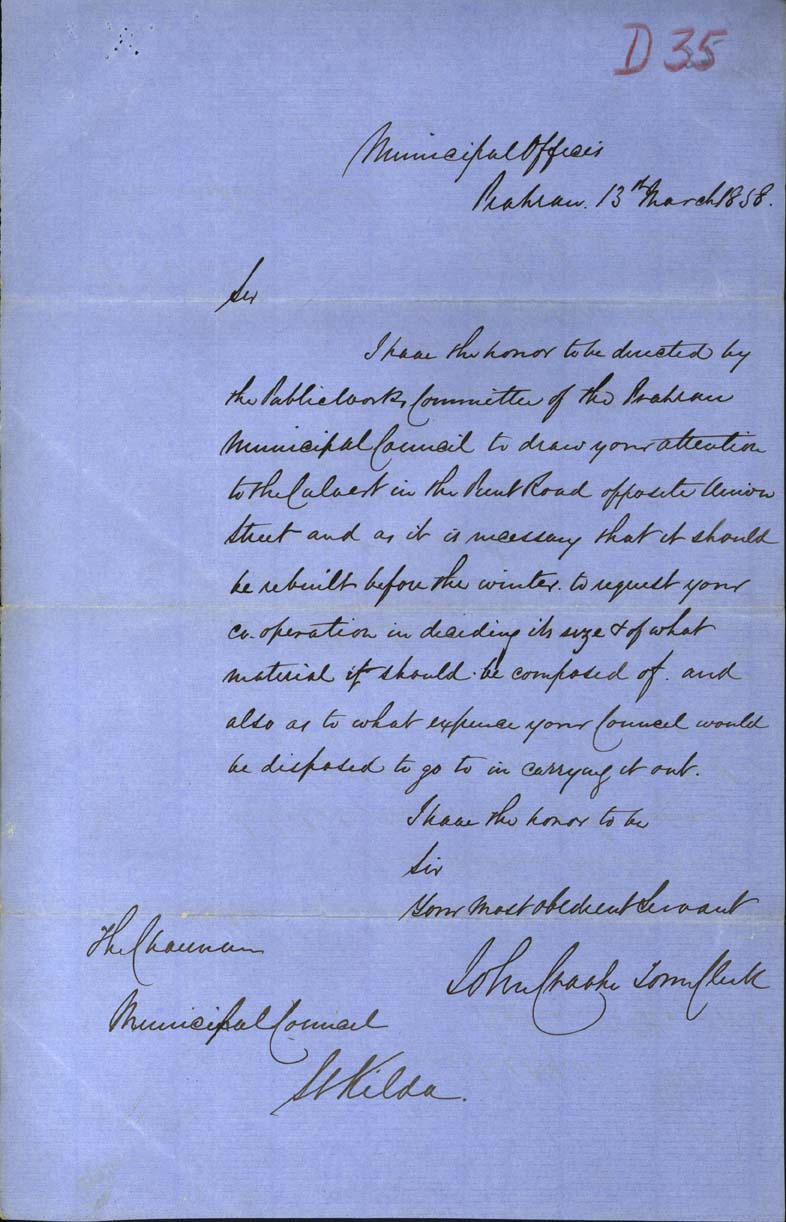 D 35
Municipal Offices
Prahran. 13th March 1858.
Sir
I have the honor to be directed by
the Public Works Committee of the Prahran
Municipal Council to draw your attention
to the Culvert in the Punt Road opposite Union
Street and as it is necessary that it should
be rebuilt before the winter. to request your
co-operation in deciding its size & of what
material it should be composed of. and
also as to what expence your Council would
be disposed to go to in carrying it out.
I have the honor to be
Sir
Your most obedient Servant
John Craake Town Clerk
The Chairman
Municipal Council
St Kilda.